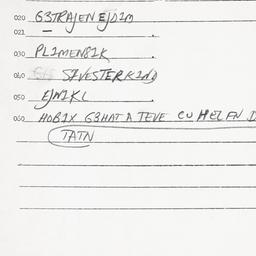 020 G3TRAJEN EJD1M
021
030 PL1MEN81K
040 SIVESTERKIND
050 EJNIKL
060 HOB1X G3HAT A TEVE CU HELFN
TATN